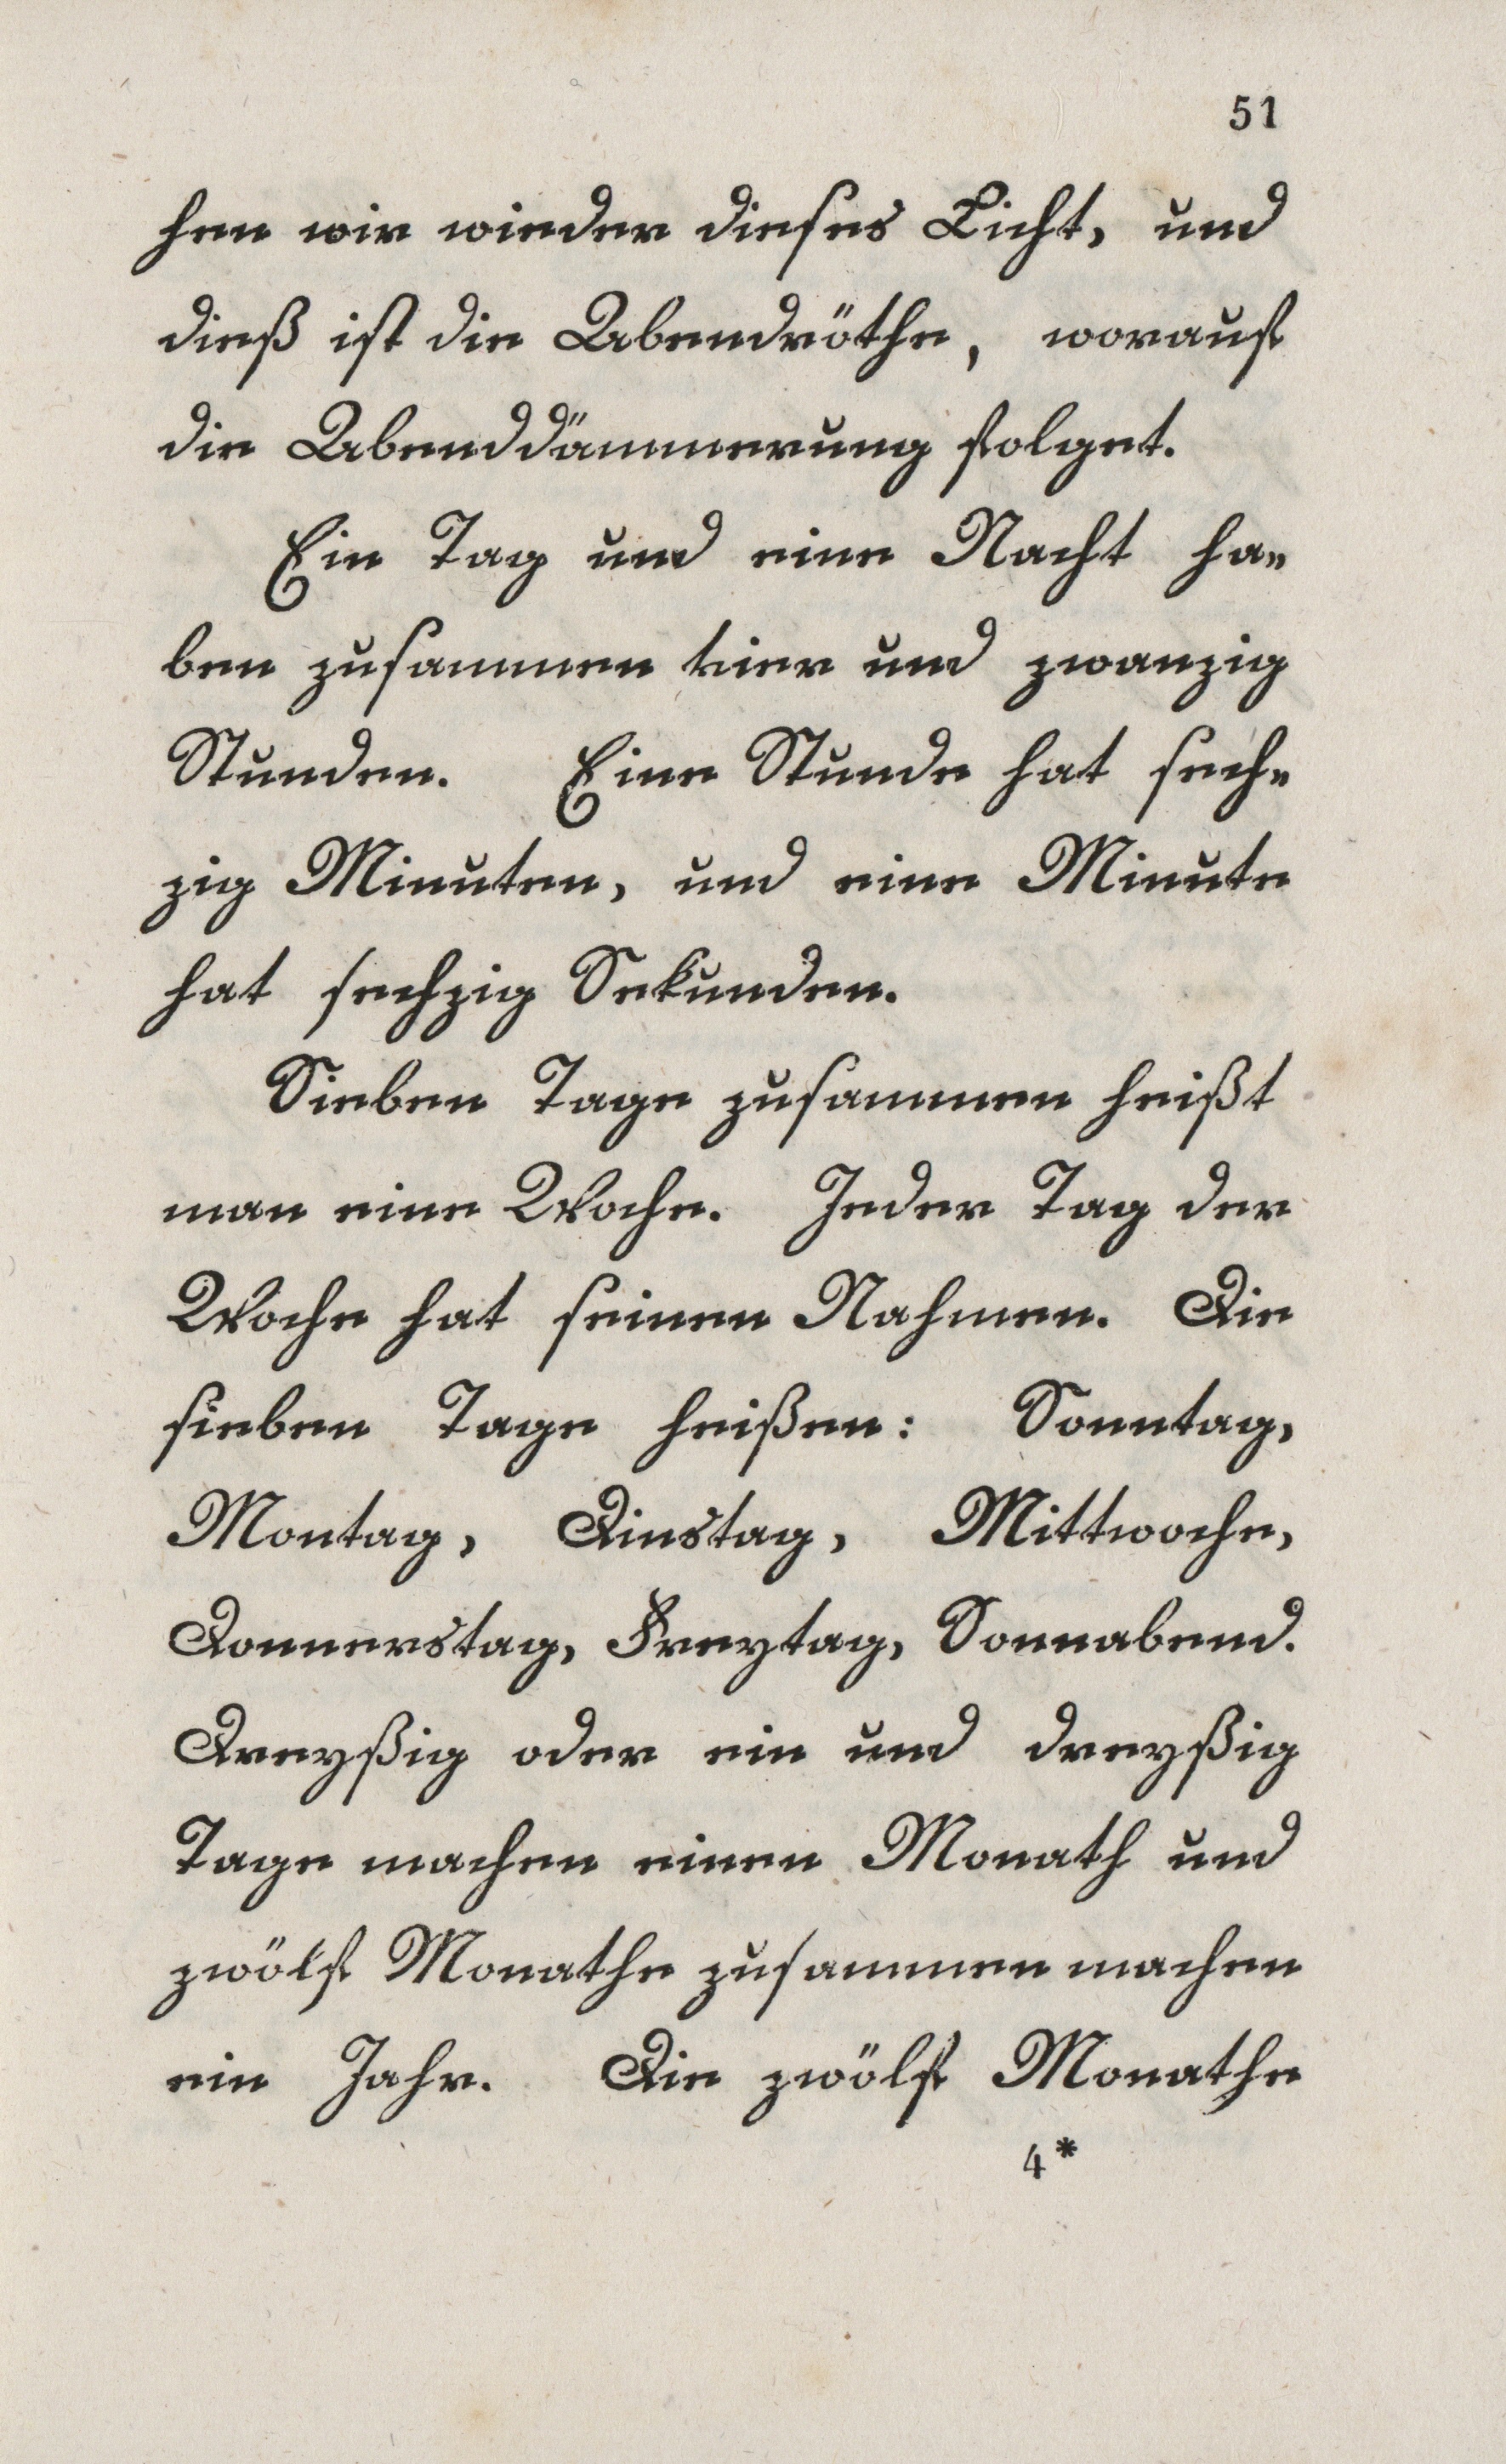 51
hen wir wieder dieses Licht, und
dieß ist die Abendröthe, worauf
die Abenddämmerung folget.
Ein Tag und eine Nacht ha-
ben zusammen vier und zwanzig
Stunden. Eine Stunde hat sech-
zig Minuten, und eine Minute
hat sechzig Sekunden.
Sieben Tage zusammen heißt
man eine Woche. Jeder Tag der
Woche hat seinen Nahmen. Die
sieben Tage heißen: Sonntag,
Montag, Dinstag, Mittwoche,
Donnerstag, Freytag, Sonnabend.
Dreyßig oder ein und dreyßig
Tage machen einen Monath und
zwölf Monathe zusammen machen
ein Jahr. Die zwölf Monathe
4*